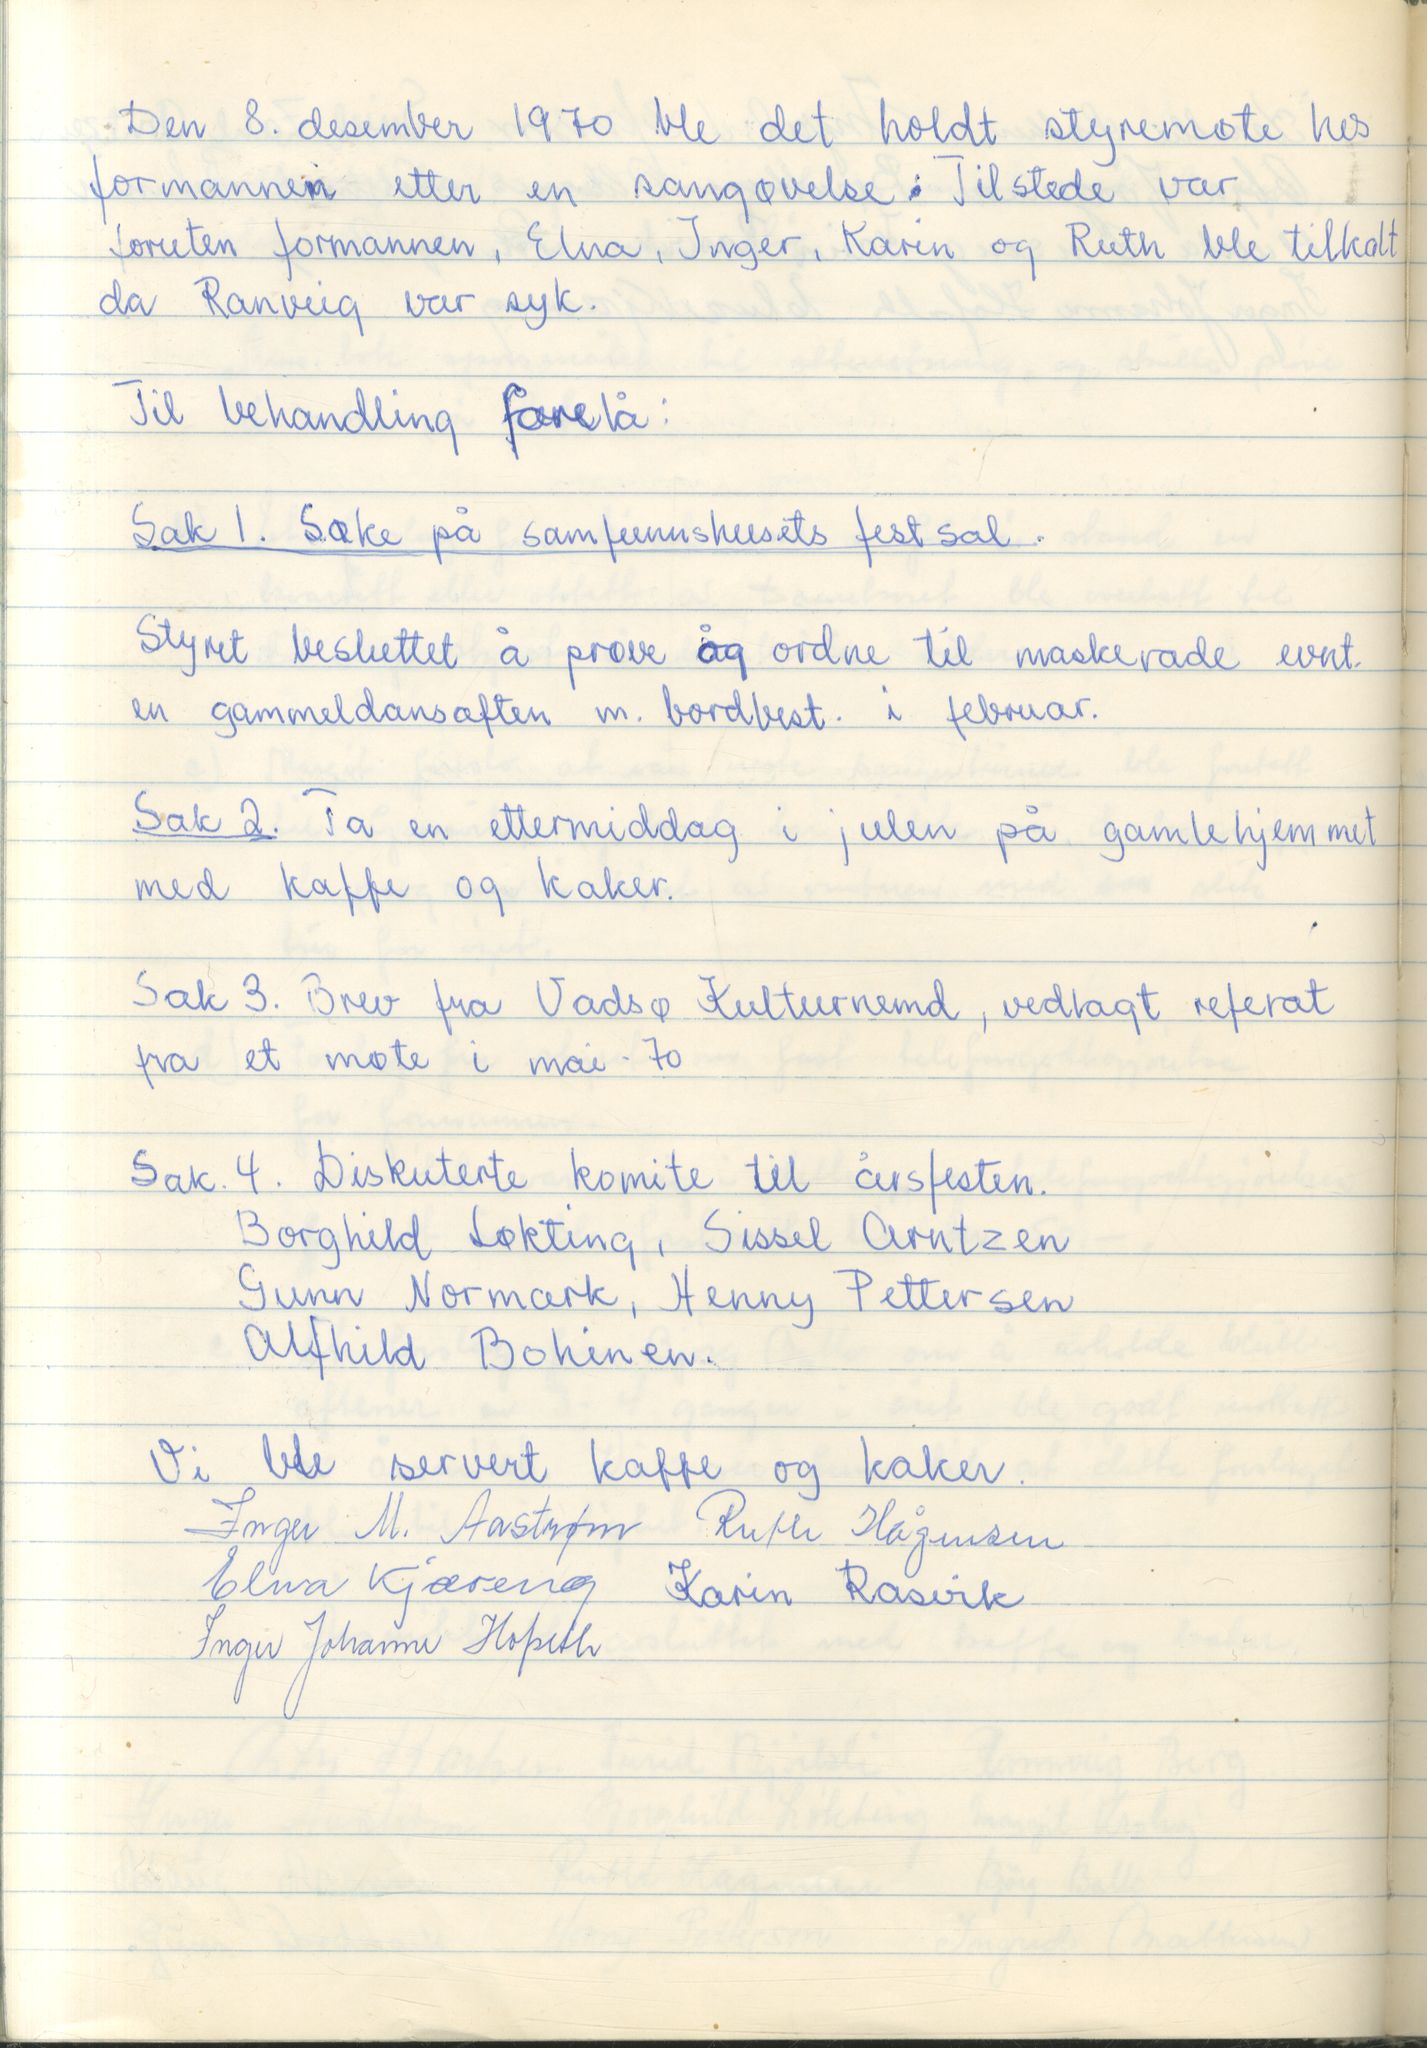 Den 8. desember 1970 ble det holdt styremøte hos
formannen etter en sangøvelse. Tilstede var
foruten formannen, Elna, Inger, Karin og Ruth ble tilkalt
da Ranveig var syk.
Til behandling forelå:
Sak 1. Søke på samfunnshusets festsal.
Styret besluttet å prøve og ordne til maskerade evnt.
en gammeldansaften m. bordbest. i februar.
Sak 2. Ta en ettermiddag i julen på gamlehjemmet
med kaffe og kaker.
Sak 3. Brev fra Vadsø Kulturnemd, vedlagt referat
fra et møte i mai -70
Sak. 4. Diskuterte komite til årsfesten.
Borghild Løkting, Sissel Arntzen
Gunn Normark, Henny Pettersen
Alfhild Bohinen.
Vi ble servert kaffe og kaker.
Inger M. Aastrøm Ruth Hågensen
Elna Kjæreng Karin Rasvik
Inger Johanne Hopseth